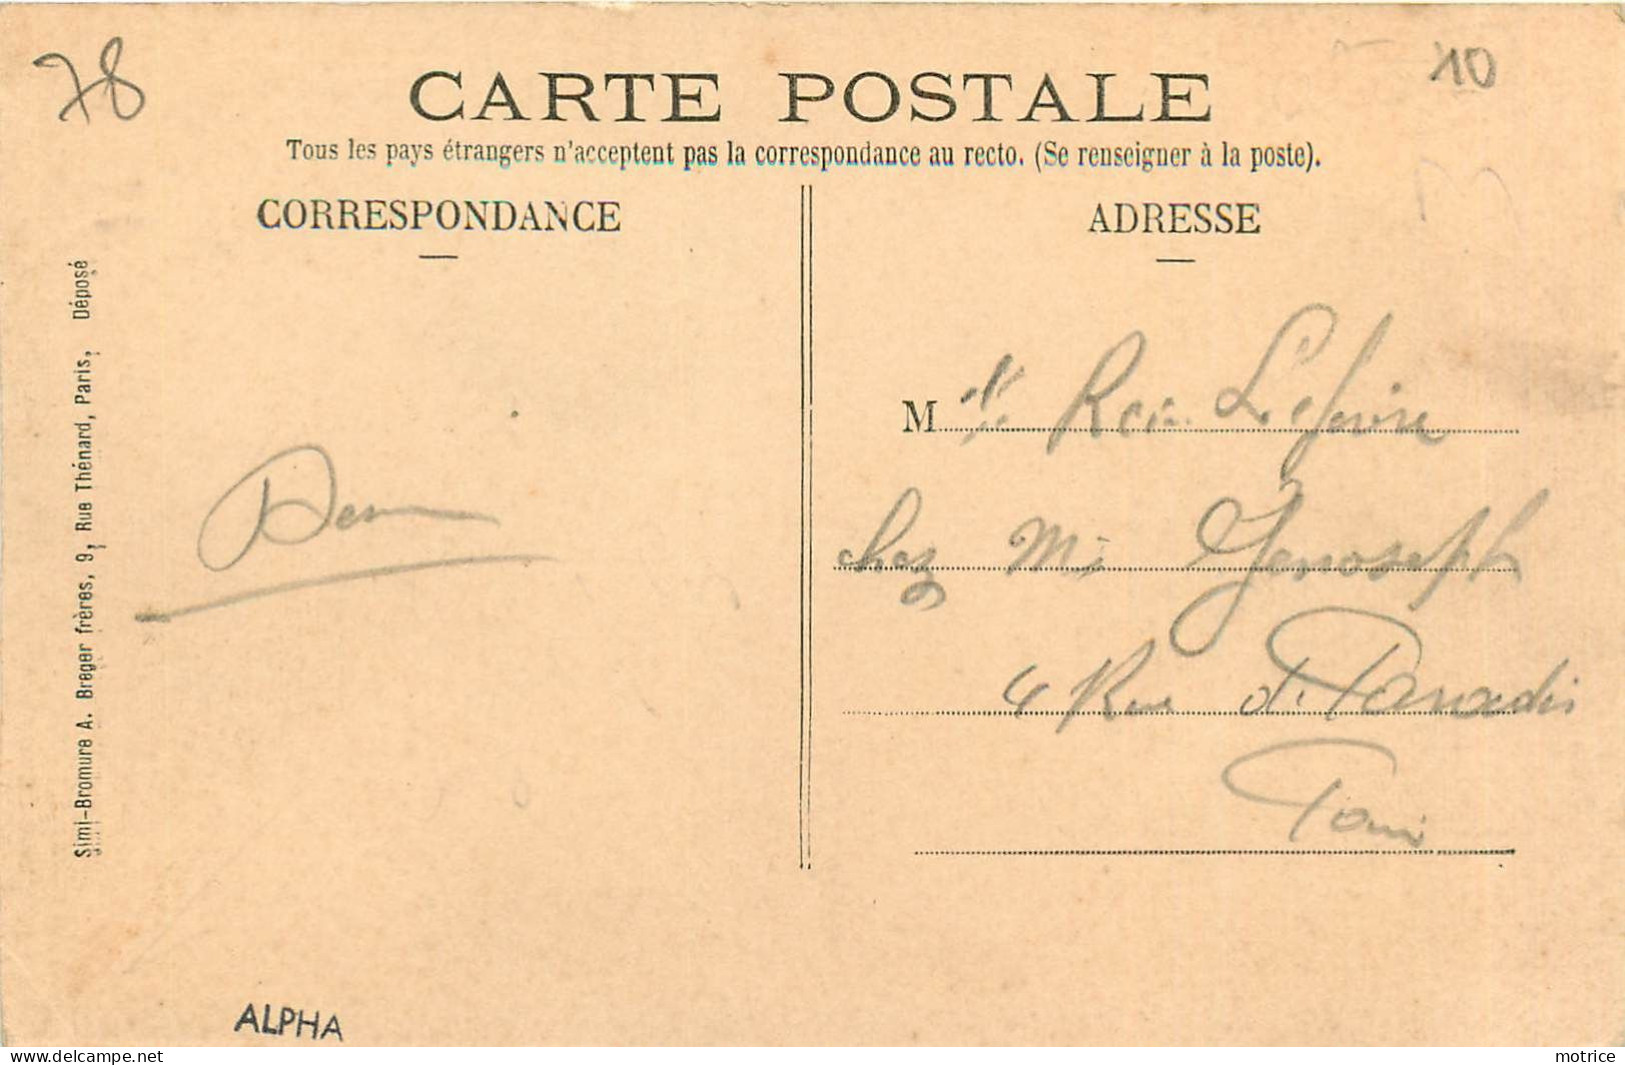 78
10
CARTE POSTALE
Tous les pays étrangers n'acceptent pas la correspondance au recto. (Se renseigner à la poste).
CORRESPONDANCE
ADRESSE
Simi-Bromure A. Breger frères, 9, Rue Thénard, Paris, Déposé
M Lefevre
chez
4 Rue d. Paradis
Paris
ALPHA
delcampe.net
motrice